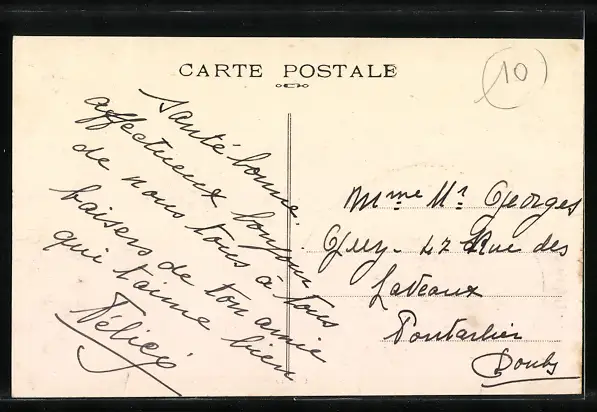 CARTE POSTALE
10
Santé bonne.
affectueux bonjour
de nous tous à tous
baisers de ton amie
qui t'aime bien
Mme Mr Georges
47 Rue des
Laveaux
Pontarlier
Doubs